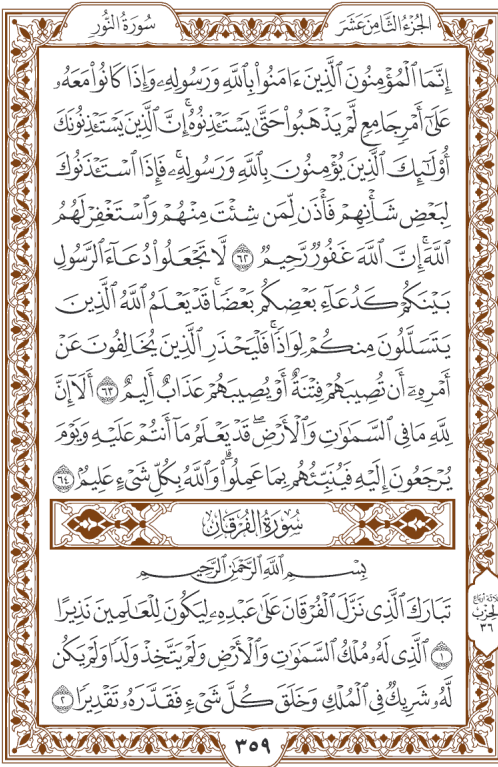 الجُزْءُ الثَّامِنَ عَشَرَ
سُورَةُ النُّور
إِنَّمَا ٱلْمُؤْمِنُونَ ٱلَّذِينَ ءَامَنُوا۟ بِٱللَّهِ وَرَسُولِهِۦ وَإِذَا كَانُوا۟ مَعَهُۥ
عَلَىٰٓ أَمْرٍ جَامِعٍ لَّمْ يَذْهَبُوا۟ حَتَّىٰ يَسْتَـْٔذِنُوهُ ۚ إِنَّ ٱلَّذِينَ يَسْتَـْٔذِنُونَكَ
أُو۟لَـٰٓئِكَ ٱلَّذِينَ يُؤْمِنُونَ بِٱللَّهِ وَرَسُولِهِۦ ۚ فَإِذَا ٱسْتَـْٔذَنُوكَ
لِبَعْضِ شَأْنِهِمْ فَأْذَن لِّمَن شِئْتَ مِنْهُمْ وَٱسْتَغْفِرْ لَهُمُ
ٱللَّهَ ۚ إِنَّ ٱللَّهَ غَفُورٌ رَّحِيمٌ ٦٢ لَّا تَجْعَلُوا۟ دُعَآءَ ٱلرَّسُولِ
بَيْنَكُمْ كَدُعَآءِ بَعْضِكُم بَعْضًا ۚ قَدْ يَعْلَمُ ٱللَّهُ ٱلَّذِينَ
يَتَسَلَّلُونَ مِنكُمْ لِوَاذًا ۚ فَلْيَحْذَرِ ٱلَّذِينَ يُخَالِفُونَ عَنْ
أَمْرِهِۦٓ أَن تُصِيبَهُمْ فِتْنَةٌ أَوْ يُصِيبَهُمْ عَذَابٌ أَلِيمٌ ٦٣ أَلَآ إِنَّ
لِلَّهِ مَا فِى ٱلسَّمَـٰوَٰتِ وَٱلْأَرْضِ ۖ قَدْ يَعْلَمُ مَآ أَنتُمْ عَلَيْهِ وَيَوْمَ
يُرْجَعُونَ إِلَيْهِ فَيُنَبِّئُهُم بِمَا عَمِلُوا۟ ۗ وَٱللَّهُ بِكُلِّ شَىْءٍ عَلِيمٌۢ ٦٤
سُورَةُ الفُرْقَانِ
بِسْمِ ٱللَّهِ ٱلرَّحْمَـٰنِ ٱلرَّحِيمِ
تَبَارَكَ ٱلَّذِى نَزَّلَ ٱلْفُرْقَانَ عَلَىٰ عَبْدِهِۦ لِيَكُونَ لِلْعَـٰلَمِينَ نَذِيرًا
١ ٱلَّذِى لَهُۥ مُلْكُ ٱلسَّمَـٰوَٰتِ وَٱلْأَرْضِ وَلَمْ يَتَّخِذْ وَلَدًا وَلَمْ يَكُن
لَّهُۥ شَرِيكٌ فِى ٱلْمُلْكِ وَخَلَقَ كُلَّ شَىْءٍ فَقَدَّرَهُۥ تَقْدِيرًا ٢
ثلاثة أرباع
الحِزْب
٣٦
٣٥٩